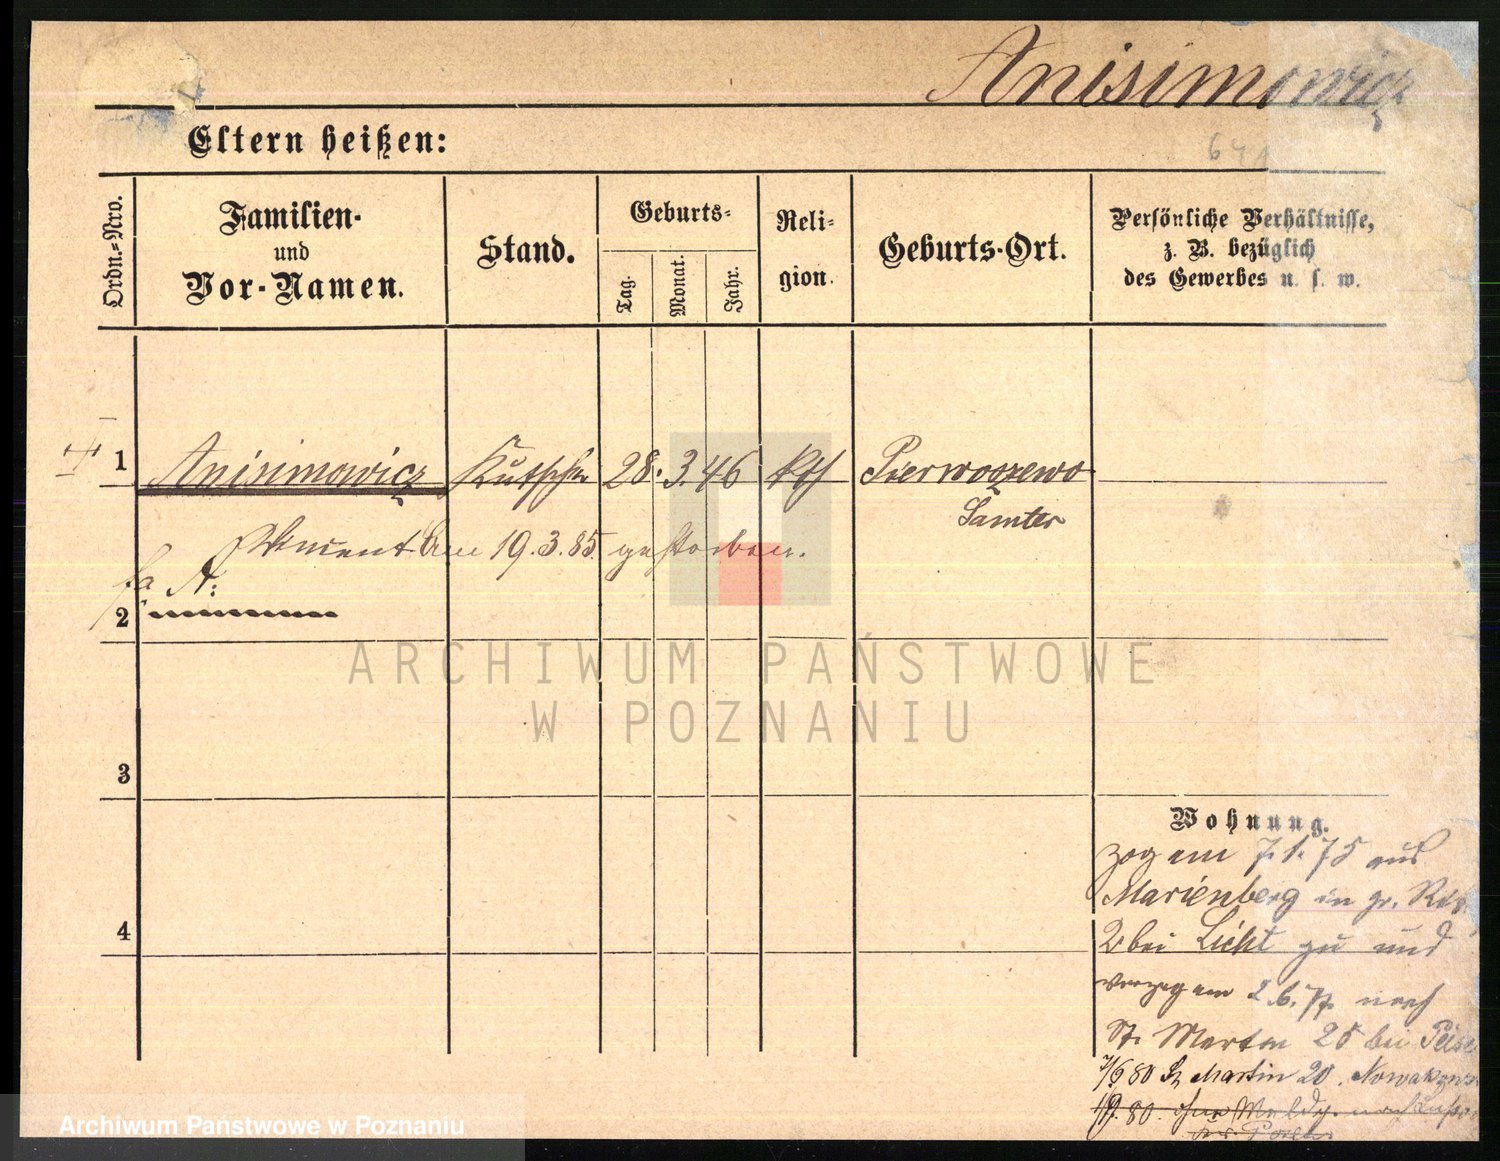 Anisimowicz
Eltern heißen:
641
Ordn.-Nro.
Familien-
und
Vor-Namen.
Stand.
Geburts-
Tag.
Monat.
Jahr.
Reli-
gion.
Geburts-Ort.
Persönliche Verhältnisse,
z. B. bezüglich
des Gewerbes u. s. w.
1 Anisimowicz Kutscher 28. 3. 46 kth Pierwoszewo
Samter
am 19.3.85. gestorben.
A:
2
3
4
Wohnung.
zog am 7.1.75 aus
Marienberg in gr.
2 bei Licht zu und
verzog am 2.6.77 nach
St. Martin 25 bei
7/9 80 St Martin 20. Nowak
80. ohne Meldg. nach
ARCHIWUM PAŃSTWOWE
W POZNANIU
Archiwum Państwowe w Poznaniu